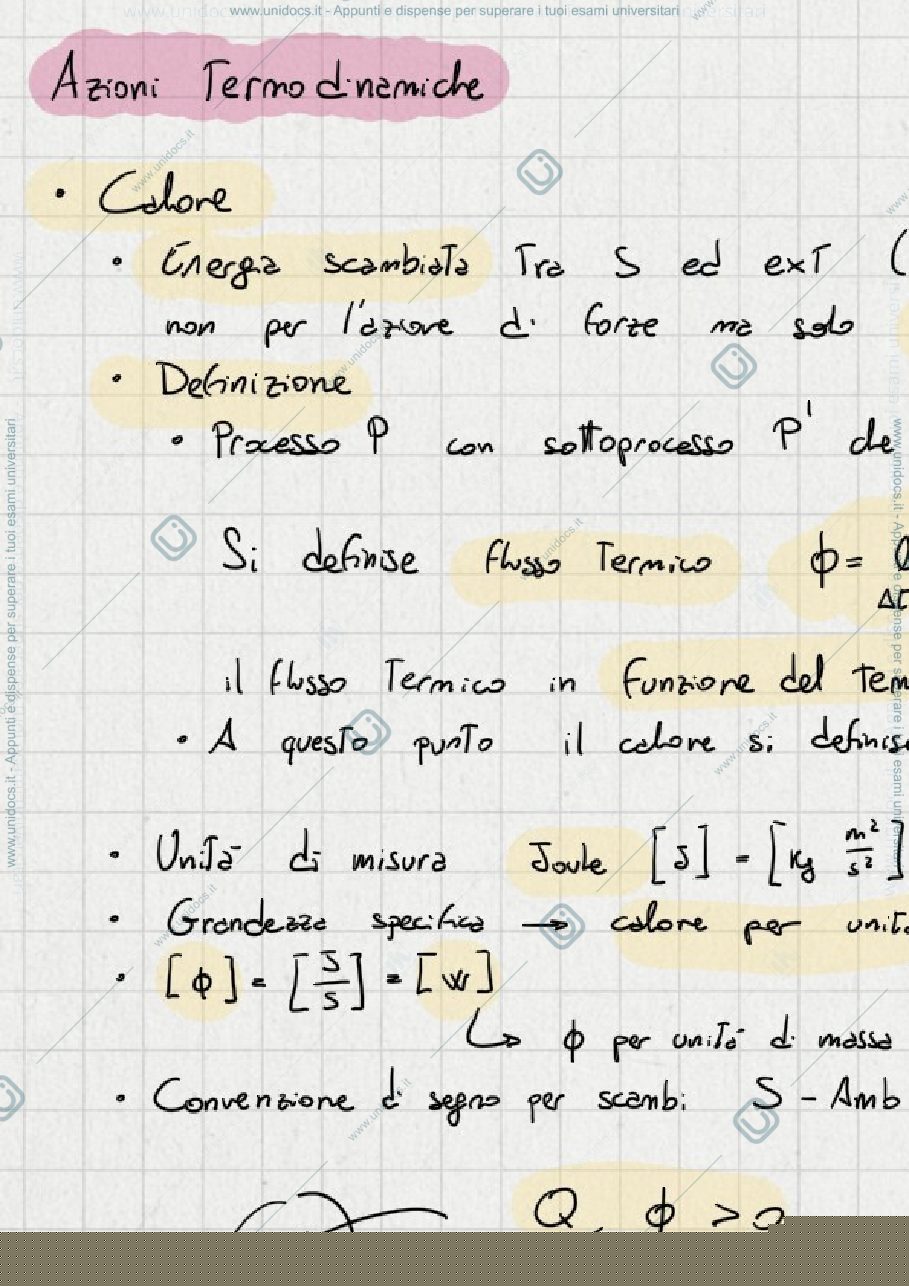 www.unidocs.it - Appunti e dispense per superare i tuoi esami universitari
Azioni Termodinamiche
• Calore
• Energia scambiata Tra S ed exT (
non per l'azione di forze ma solo
• Definizione
• Processo P con sottoprocesso P' che
Si definise flusso Termico ϕ =
il flusso Termico in funzione del Tem
• A questo punto il calore si definisc
• Unità di misura Joule [J] = [Kg m²/s²]
• Grandezza specifica → calore per unità
• [ϕ] = [J/s] = [W]
↳ ϕ per unità di massa
• Convenzione di segno per scambi S - Amb
Q, ϕ > 0
www.unidocs.it - Appunti e dispense per superare i tuoi esami universitari